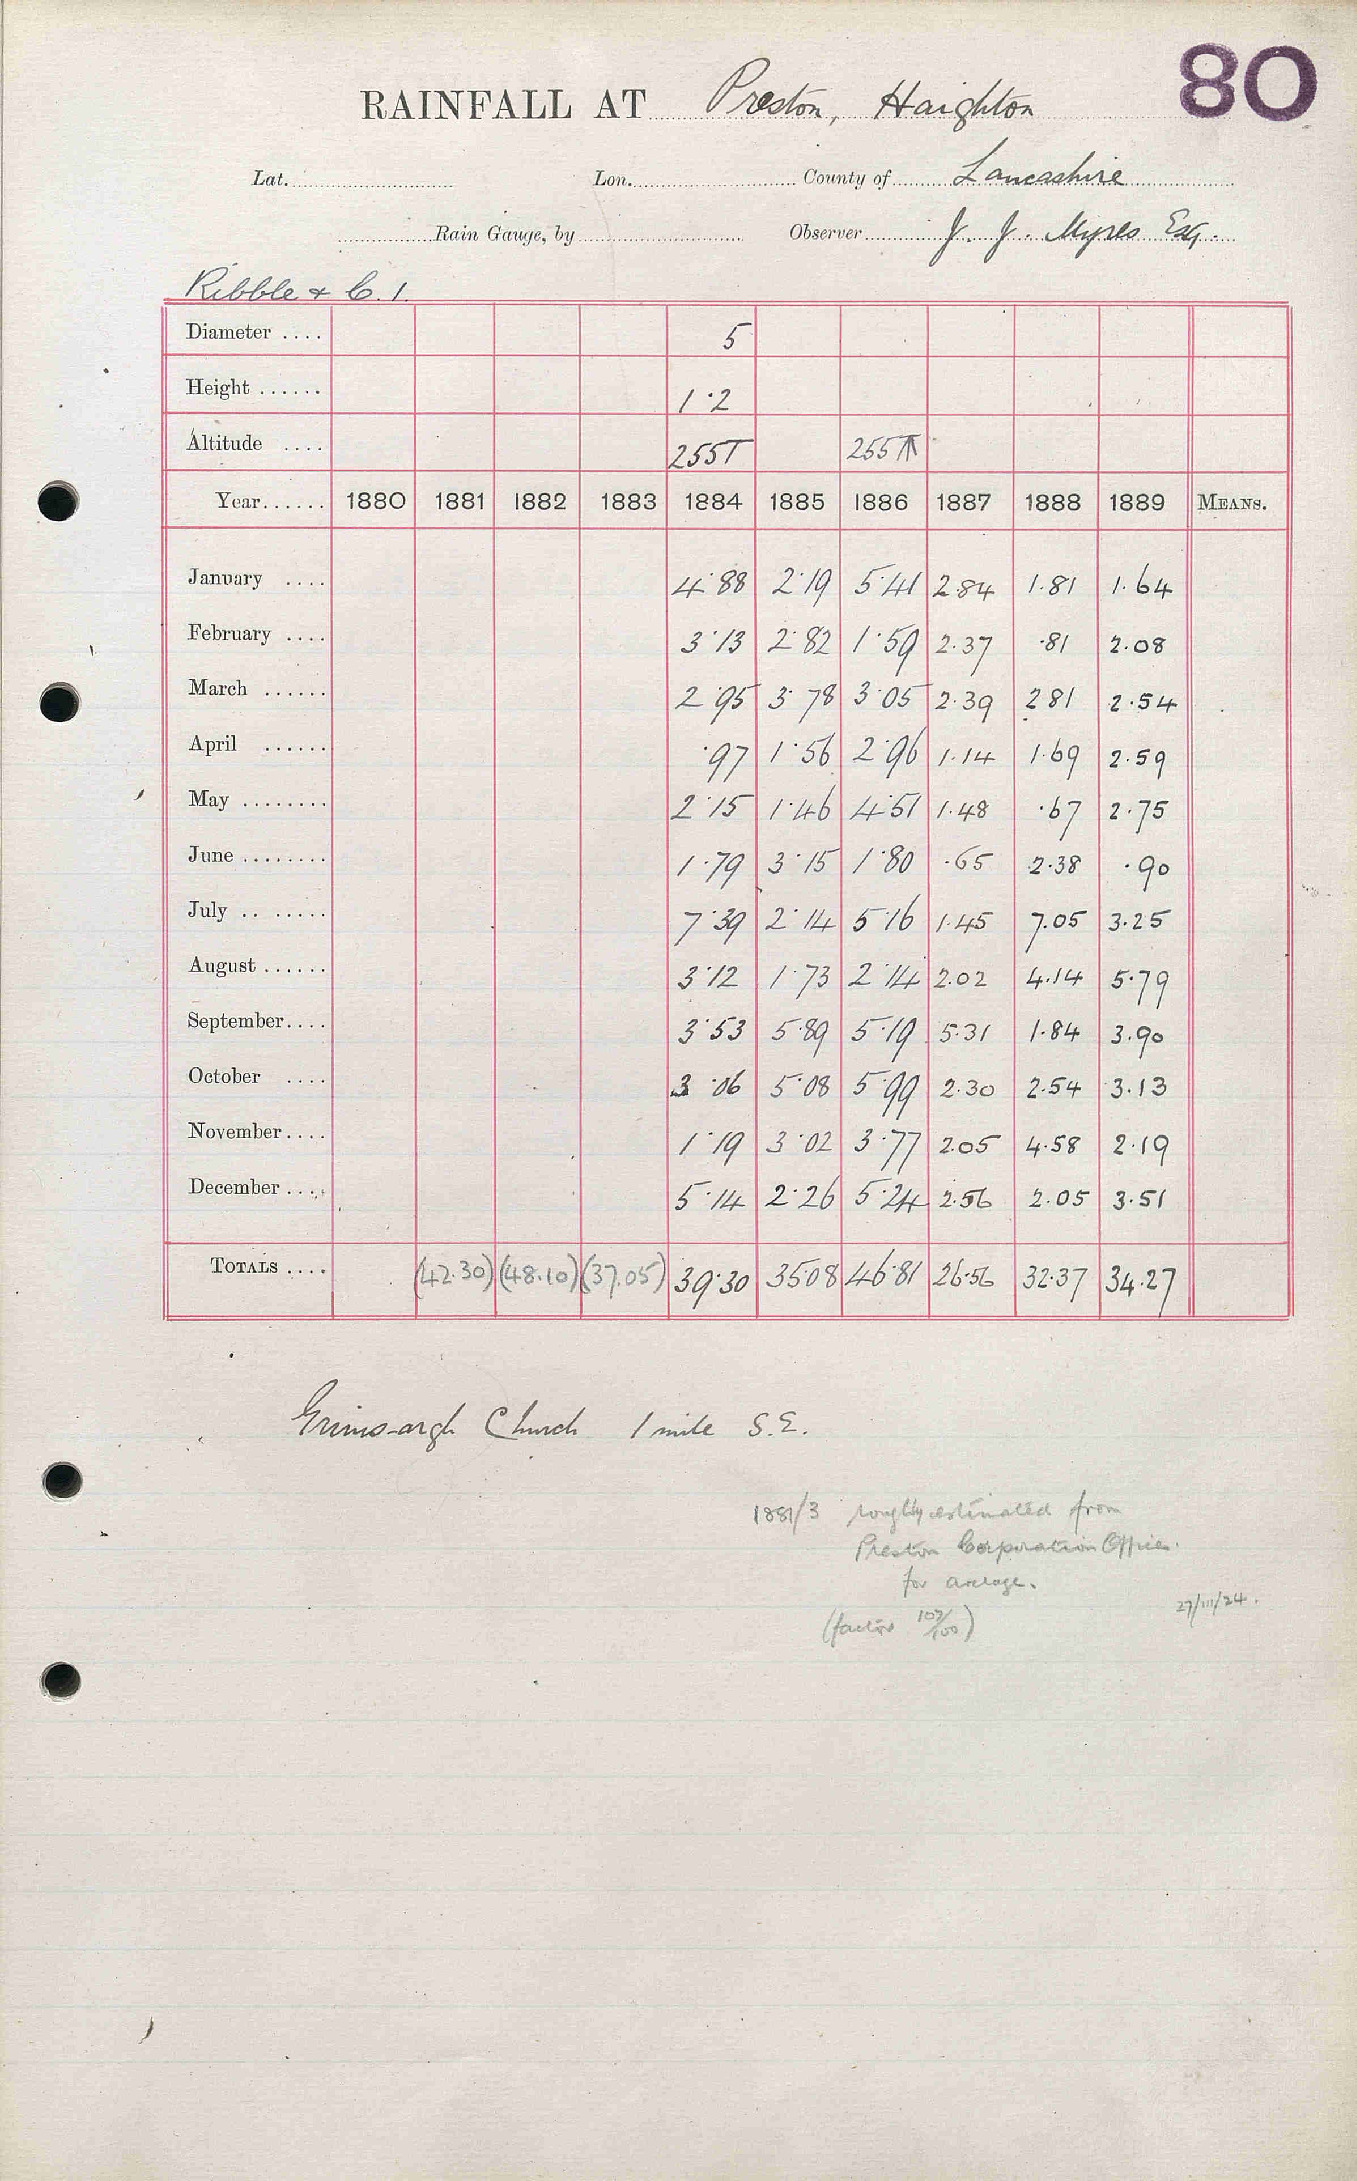 80
RAINFALL AT Preston, Haighton
Lat. Lon. County of Lancashire
Rain Gauge, by Observer J. J. Myres Esq.
Ribble & C. 1.
Diameter .... 5
Height ...... 1.2
Altitude .... 255T 255
Year...... 1880 1881 1882 1883 1884 1885 1886 1887 1888 1889 MEANS.
January .... 4.88 2.19 5.41 2.84 1.81 1.64
February .... 3.13 2.82 1.59 2.37 .81 2.08
March ...... 2.95 3.78 3.05 2.39 2.81 2.54
April ...... .97 1.56 2.96 1.14 1.69 2.59
May ........ 2.15 1.46 4.51 1.48 .67 2.75
June ........ 1.79 3.15 1.80 .65 2.38 .90
July .. ..... 7.39 2.14 5.16 1.45 7.05 3.25
August ...... 3.12 1.73 2.14 2.02 4.14 5.79
September.... 3.53 5.89 5.19 5.31 1.84 3.90
October .... 3.06 5.08 5.99 2.30 2.54 3.13
November.... 1.19 3.02 3.77 2.05 4.58 2.19
December .... 5.14 2.26 5.24 2.56 2.05 3.51
TOTALS .... (42.30) (48.10) (37.05) 39.30 35.08 46.81 26.56 32.37 34.27
Grims-argh Church 1 mile S.E.
1881/3 roughly estimated from
Preston Corporation Offices.
for average.
(factor 107/100)
27/III/24.